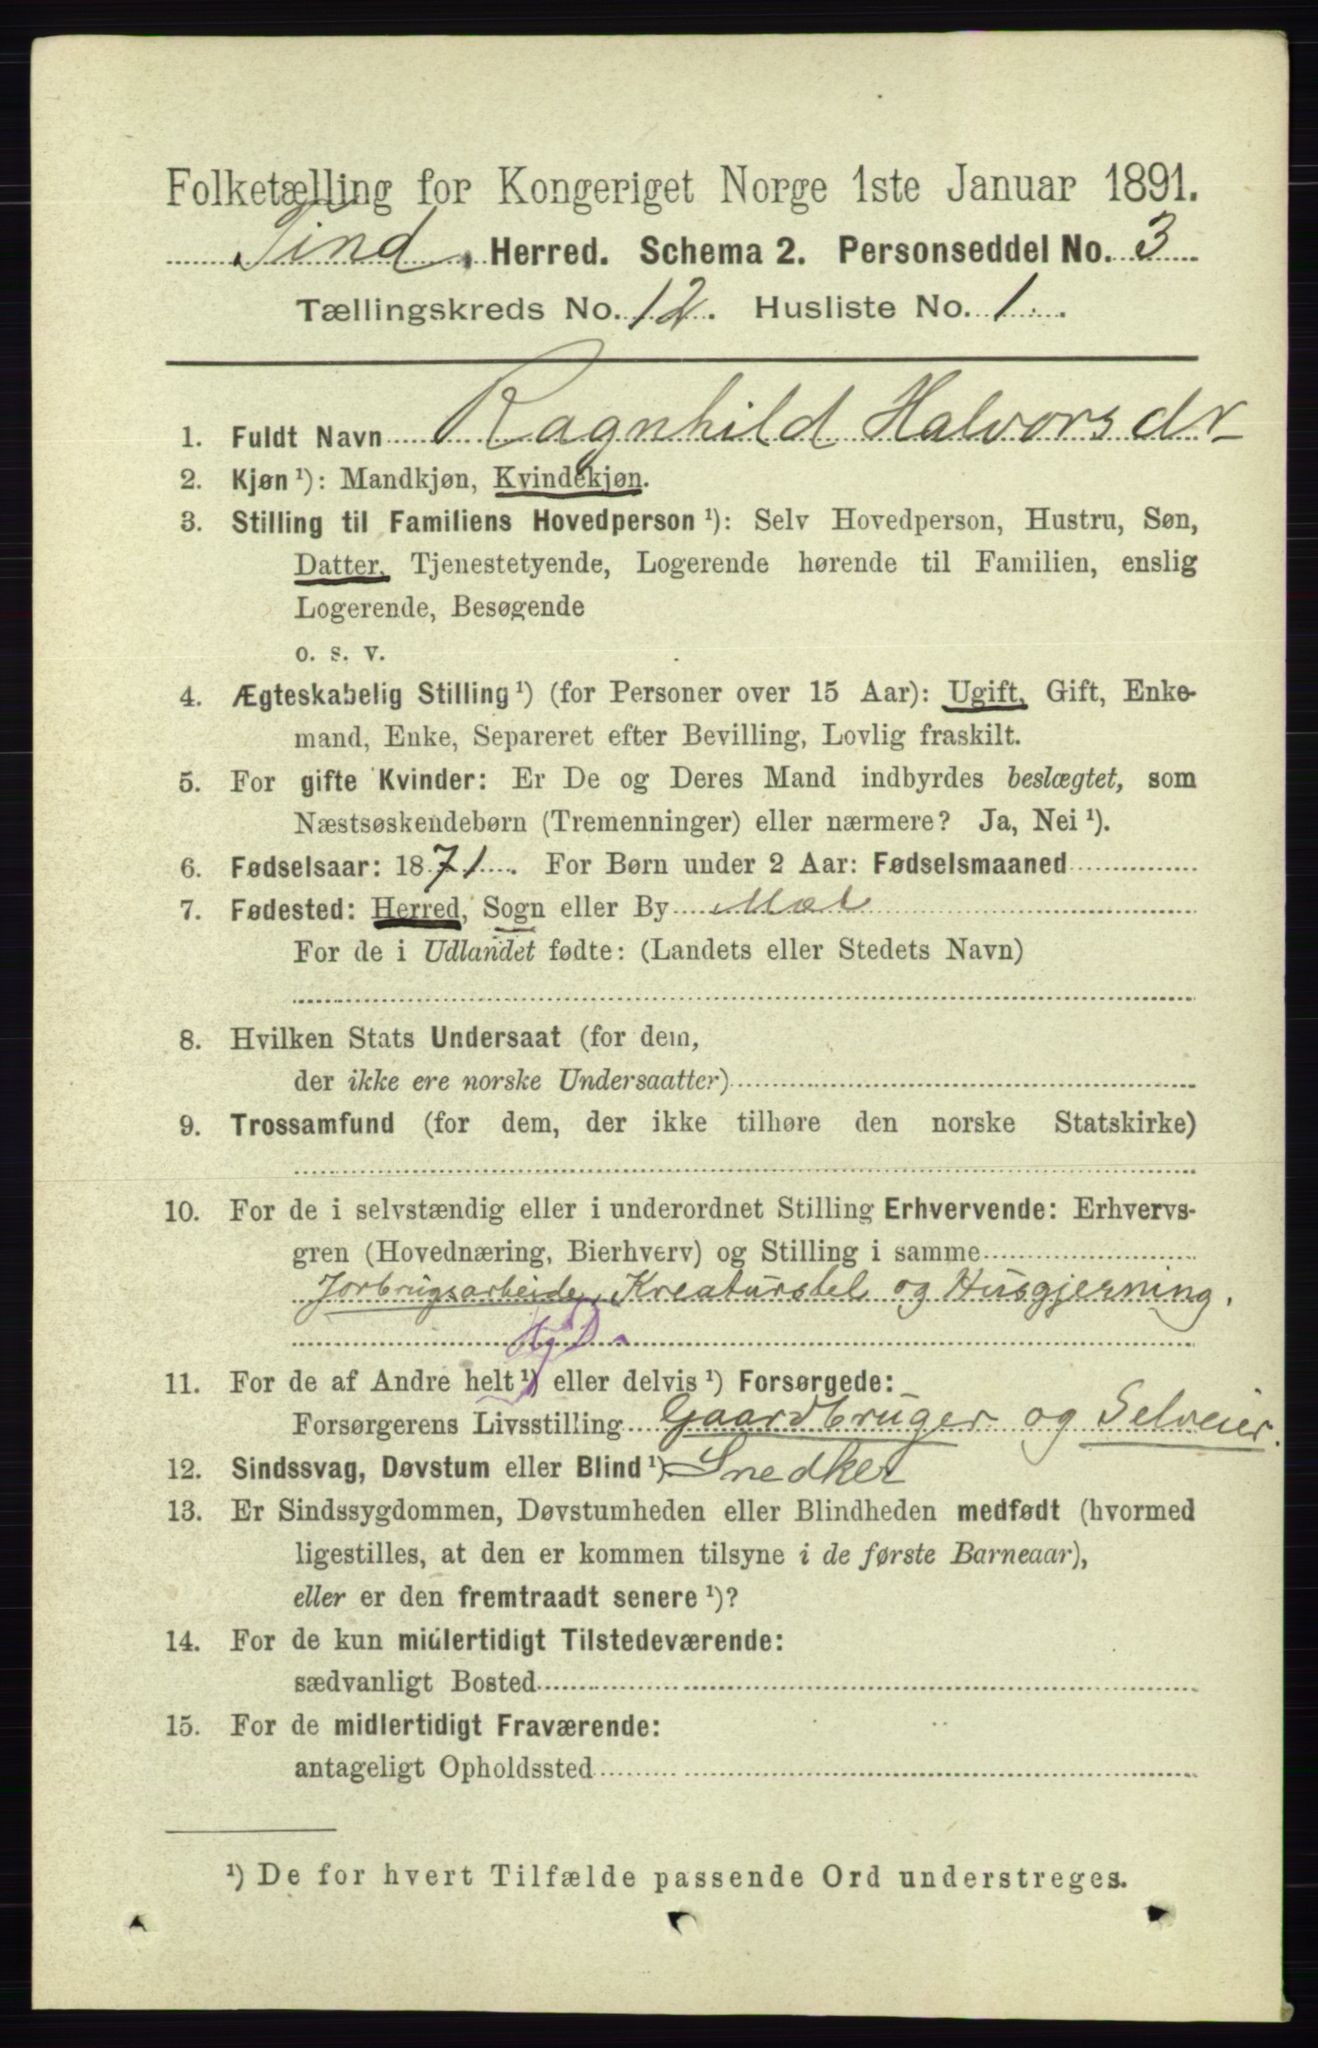 Folketælling for Kongeriget Norge 1ste Januar 1891.
Tind Herred. Schema 2. Personseddel No. 3
Tællingskreds No. 12. Husliste No. 1.
1. Fuldt Navn Ragnhild Halvorsdr
2. Kjøn ¹): Mandkjøn, Kvindekjøn.
3. Stilling til Familiens Hovedperson ¹): Selv Hovedperson, Hustru, Søn,
Datter, Tjenestetyende, Logerende hørende til Familien, enslig
Logerende, Besøgende
o. s. v.
4. Ægteskabelig Stilling ¹) (for Personer over 15 Aar): Ugift, Gift, Enke-
mand, Enke, Separeret efter Bevilling, Lovlig fraskilt.
5. For gifte Kvinder: Er De og Deres Mand indbyrdes beslægtet, som
Næstsøskendebørn (Tremenninger) eller nærmere? Ja, Nei ¹).
6. Fødselsaar: 1871. For Børn under 2 Aar: Fødselsmaaned
7. Fødested: Herred, Sogn eller By Mæl
For de i Udlandet fødte: (Landets eller Stedets Navn)
8. Hvilken Stats Undersaat (for dem,
der ikke ere norske Undersaatter)
9. Trossamfund (for dem, der ikke tilhøre den norske Statskirke)
10. For de i selvstændig eller i underordnet Stilling Erhvervende: Erhvervs-
gren (Hovednæring, Bierhverv) og Stilling i samme
Jorbrugsarbeide, Kreaturstel og Husgjerning.
11. For de af Andre helt ¹) eller delvis ¹) Forsørgede:
Forsørgerens Livsstilling Gaardbruger og Selveier.
12. Sindssvag, Døvstum eller Blind ¹) Snedker
13. Er Sindssygdommen, Døvstumheden eller Blindheden medfødt (hvormed
ligestilles, at den er kommen tilsyne i de første Barneaar),
eller er den fremtraadt senere ¹)?
14. For de kun midlertidigt Tilstedeværende:
sædvanligt Bosted
15. For de midlertidigt Fraværende:
antageligt Opholdssted
¹) De for hvert Tilfælde passende Ord understreges.